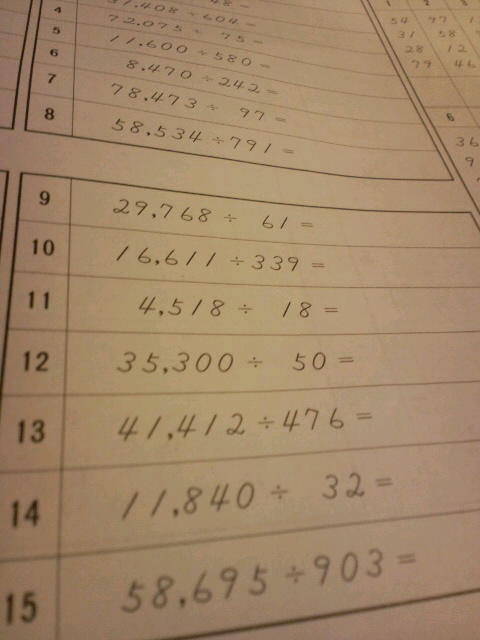 4 31,408 ÷ 604 =
5 72,075 ÷ 75 =
6 11,600 ÷ 580 =
7 8,470 ÷ 242 =
8 78,473 ÷ 97 =
58,534 ÷ 791 =
9 29,768 ÷ 61 =
10 16,611 ÷ 339 =
11 4,518 ÷ 18 =
12 35,300 ÷ 50 =
13 41,412 ÷ 476 =
14 11,840 ÷ 32 =
15 58,695 ÷ 903 =
1 2
54 97
31 58
28 12
79 46
6
36
9